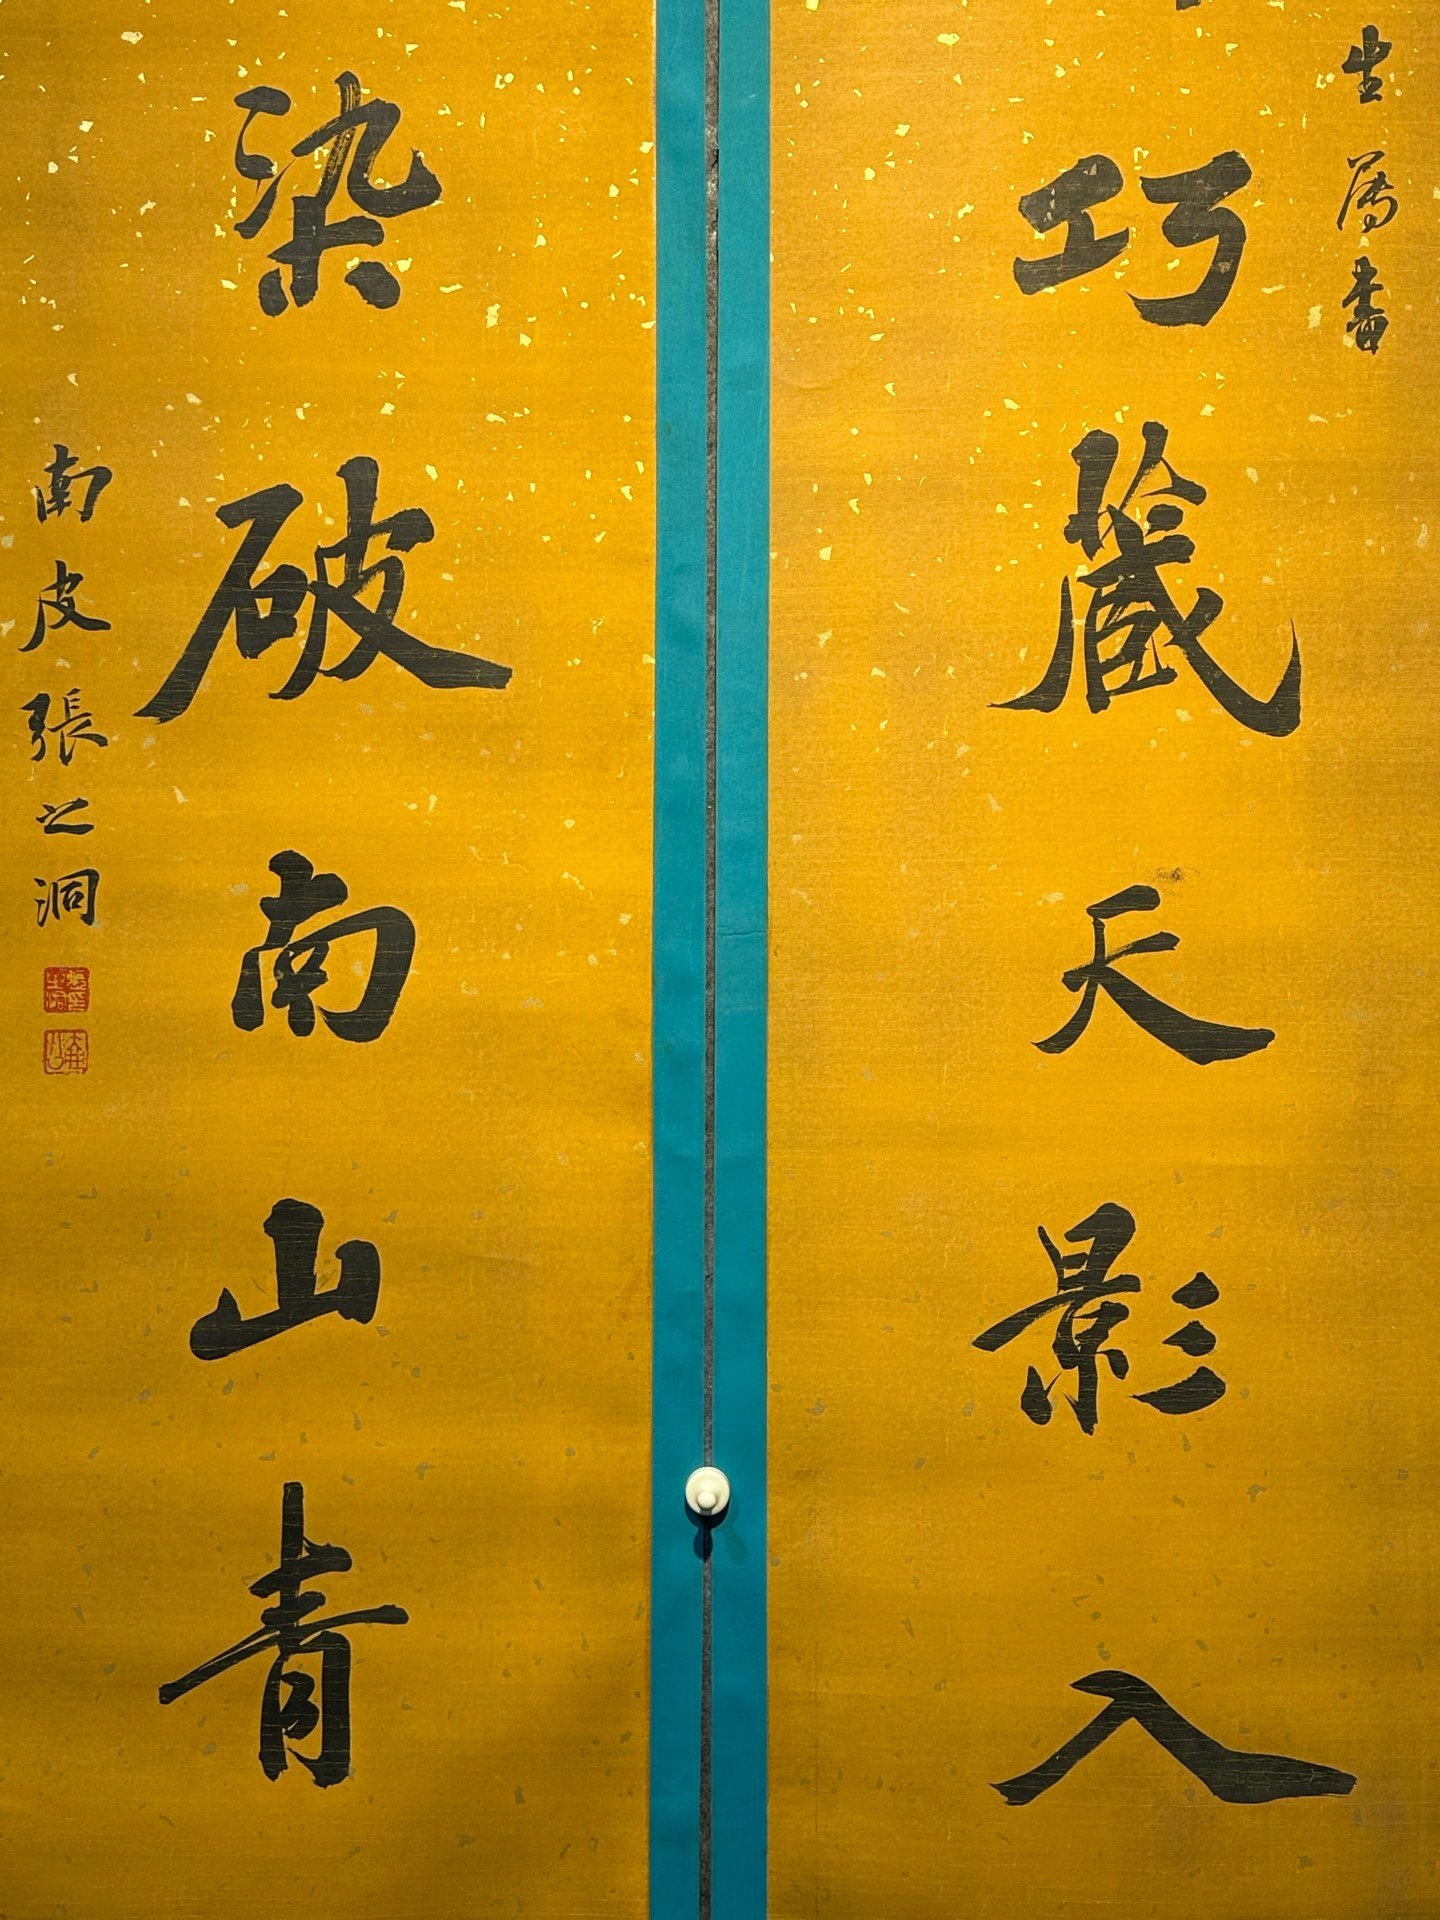 生屬書
巧藏天影入
染破南山青
南皮張之洞